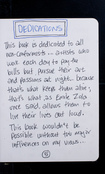 DEDICATIONS
This book is dedicated to all
non-conformists - artists who
work each day to pay the
bills but pursue their art
and passions at night, because
that's what keeps them alive;
that's what, as Emile Zola
once said, allows them to
live their lives out loud.
This book wouldn't be
possible without two major
influences on my work...